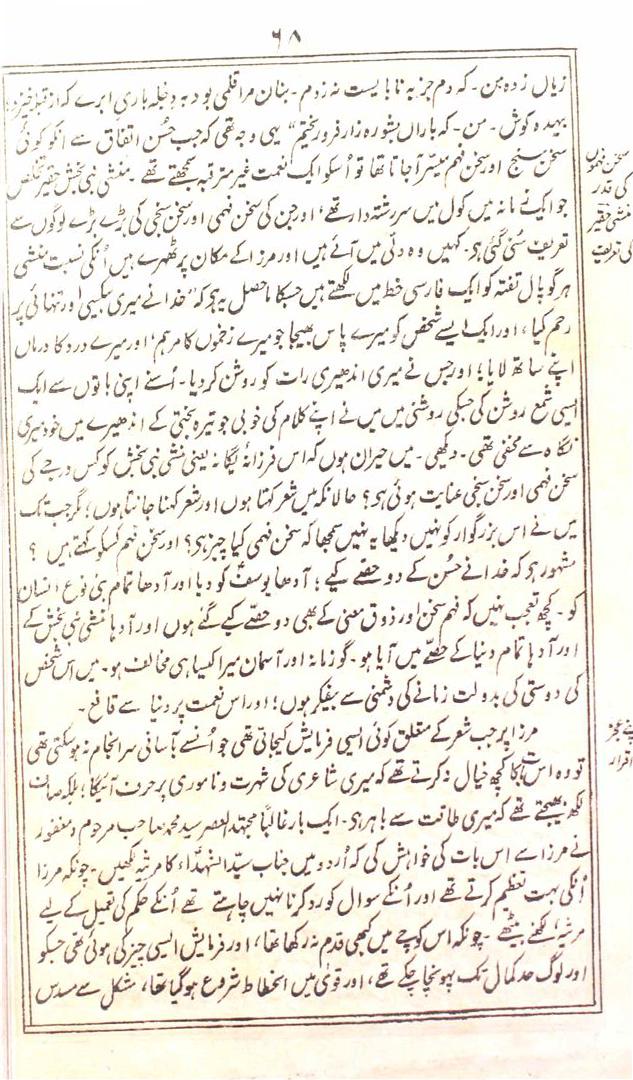 ۶۸
زیاں زدہ من - کہ دم جز بہ نابایست نہ زدم - بنان مرا قلمی بود بہ دخلہ باری ابرے کہ از قبلہ خیزد و
بیہدہ کوش - من - کہ باراں بشورہ زار فرو ریختم" یہی وجہ تھی کہ جب حُسن اتفاق سے انکو کوئی
سخن سنج اور سخن فہم میسّر آجاتا تھا تو اُسکو ایک نعمت غیر مترقبہ سمجھتے تھے - منشی نبی بخش حقیر تخلص
جو ایک زمانہ میں کول میں سررشتہ دار تھے، اور جن کی سخن فہمی اور سخن سنجی کی بڑے بڑے لوگوں سے
تعریف سُنی گئی ہی - کہیں وہ دلّی میں آئے ہیں اور مرزا کے مکان پر ٹھہرے ہیں اُنکی نسبت منشی
ہر گوپال تفتہ کو ایک فارسی خط میں لکھتے ہیں جسکا ماحصل یہ ہی کہ "خدا نے میری بیکسی اور تنہائی پر
رحم کیا، اور ایک ایسے شخص کو میرے پاس بھیجا جو میرے زخموں کا مرہم، اور میرے درد کا درماں
اپنے ساتھ لایا؛ اور جس نے میری اندھیری رات کو روشن کر دیا - اُسنے اپنی باتوں سے ایک
ایسی شمع روشن کی جسکی روشنی میں میں نے اپنے کلام کی خوبی جو تیرہ بختی کے اندھیرے میں خود میری
نگاہ سے مخفی تھی - دیکھی - میں حیران ہوں کہ اس فرزانۂ یگانہ یعنی منشی نبی بخش کو کس درجے کی
سخن فہمی اور سخن سنجی عنایت ہوئی ہی؟ حالانکہ میں شعر کہتا ہوں اور شعر کہنا جانتا ہوں؛ مگر جب تک
میں نے اس بزرگوار کو نہیں دیکھا یہ نہیں سمجھا کہ سخن فہمی کیا چیز ہی؟ اور سخن فہم کسکو کہتے ہیں؟
مشہور ہی کہ خدا نے حُسن کے دو حصّے کیے؛ آدھا یوسفؑ کو دیا اور آدھا تمام بنی نوع انسان
کو - کچھ تعجب نہیں کہ فہم سخن اور ذوق معنی کے بھی دو حصّے کیے گئے ہوں اور آدہا منشی نبی بخش کے
اور آدہا تمام دنیا کے حصّے میں آیا ہو - گو زمانہ اور آسمان میرا کیسا ہی مخالف ہو - میں اس شخص
کی دوستی کی بدولت زمانے کی دشمنی سے بیفکر ہوں؛ اور اس نعمت پر دنیا سے قانع -
مرزا پر جب شعر کے متعلق کوئی ایسی فرمایش کیجاتی تھی جو اُنسے بآسانی سرانجام نہ ہو سکتی تھی
تو وہ اس بات کا کچھ خیال نہ کرتے تھے کہ میری شاعری کی شہرت و ناموری پر حرف آئیگا؛ بلکہ صاف
لکھ بھیجتے تھے کہ میری طاقت سے باہر ہی - ایک بار غالباً مجتہد العصر سید محمد صاحب مرحوم و مغفور
نے مرزا سے اس بات کی خواہش کی کہ اُردو میں جناب سیّد الشہداء کا مرثیہ لکھیں - چونکہ مرزا
اُنکی بہت تعظیم کرتے تھے اور اُنکے سوال کو رد کرنا نہیں چاہتے تھے اُنکے حکم کی تعمیل کے لیے
مرثیہ لکھنے بیٹھے - چونکہ اس کوچے میں کبھی قدم نہ رکھا تھا، اور فرمایش ایسی چیز کی ہوئی تھی جسکو
اور لوگ حد کمال تک پہونچا چکے تھے، اور قویٰ میں انحطاط شروع ہو گیا تھا، مشکل سے مسدس
سخن فہموں
کی قدر
منشی حقیر
کی تعریف
اپنے عجز
اقرار